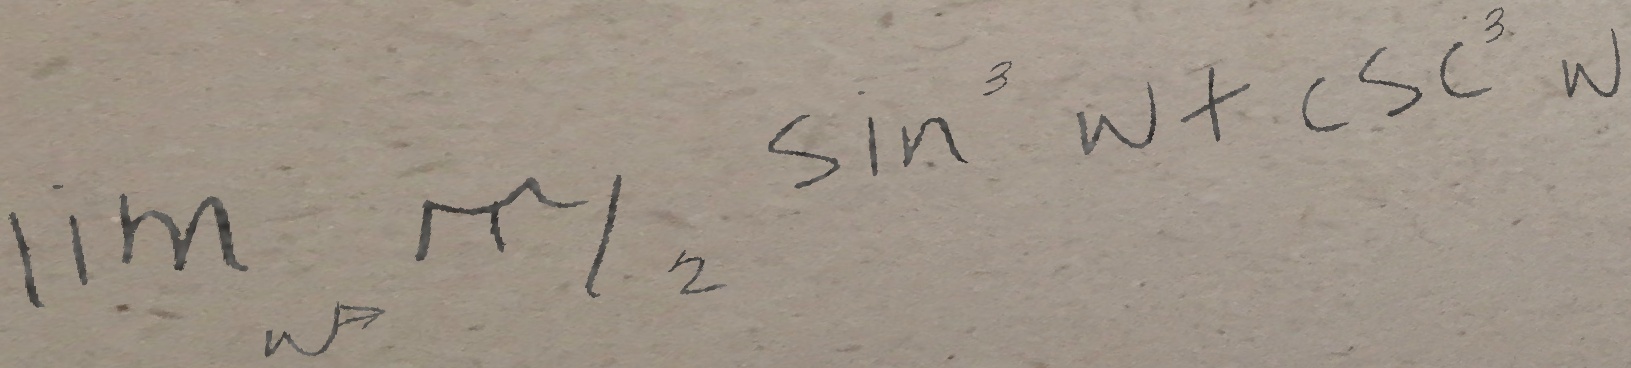 lim w→ π/2 sin³ w + csc³ w